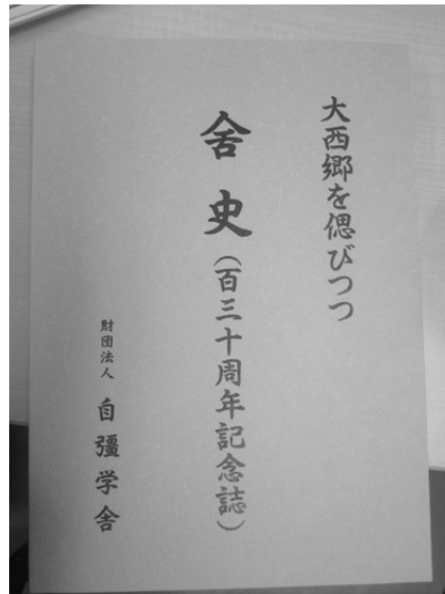 大西郷を偲びつつ
舎史(百三十周年記念誌)
財団法人 自彊学舎